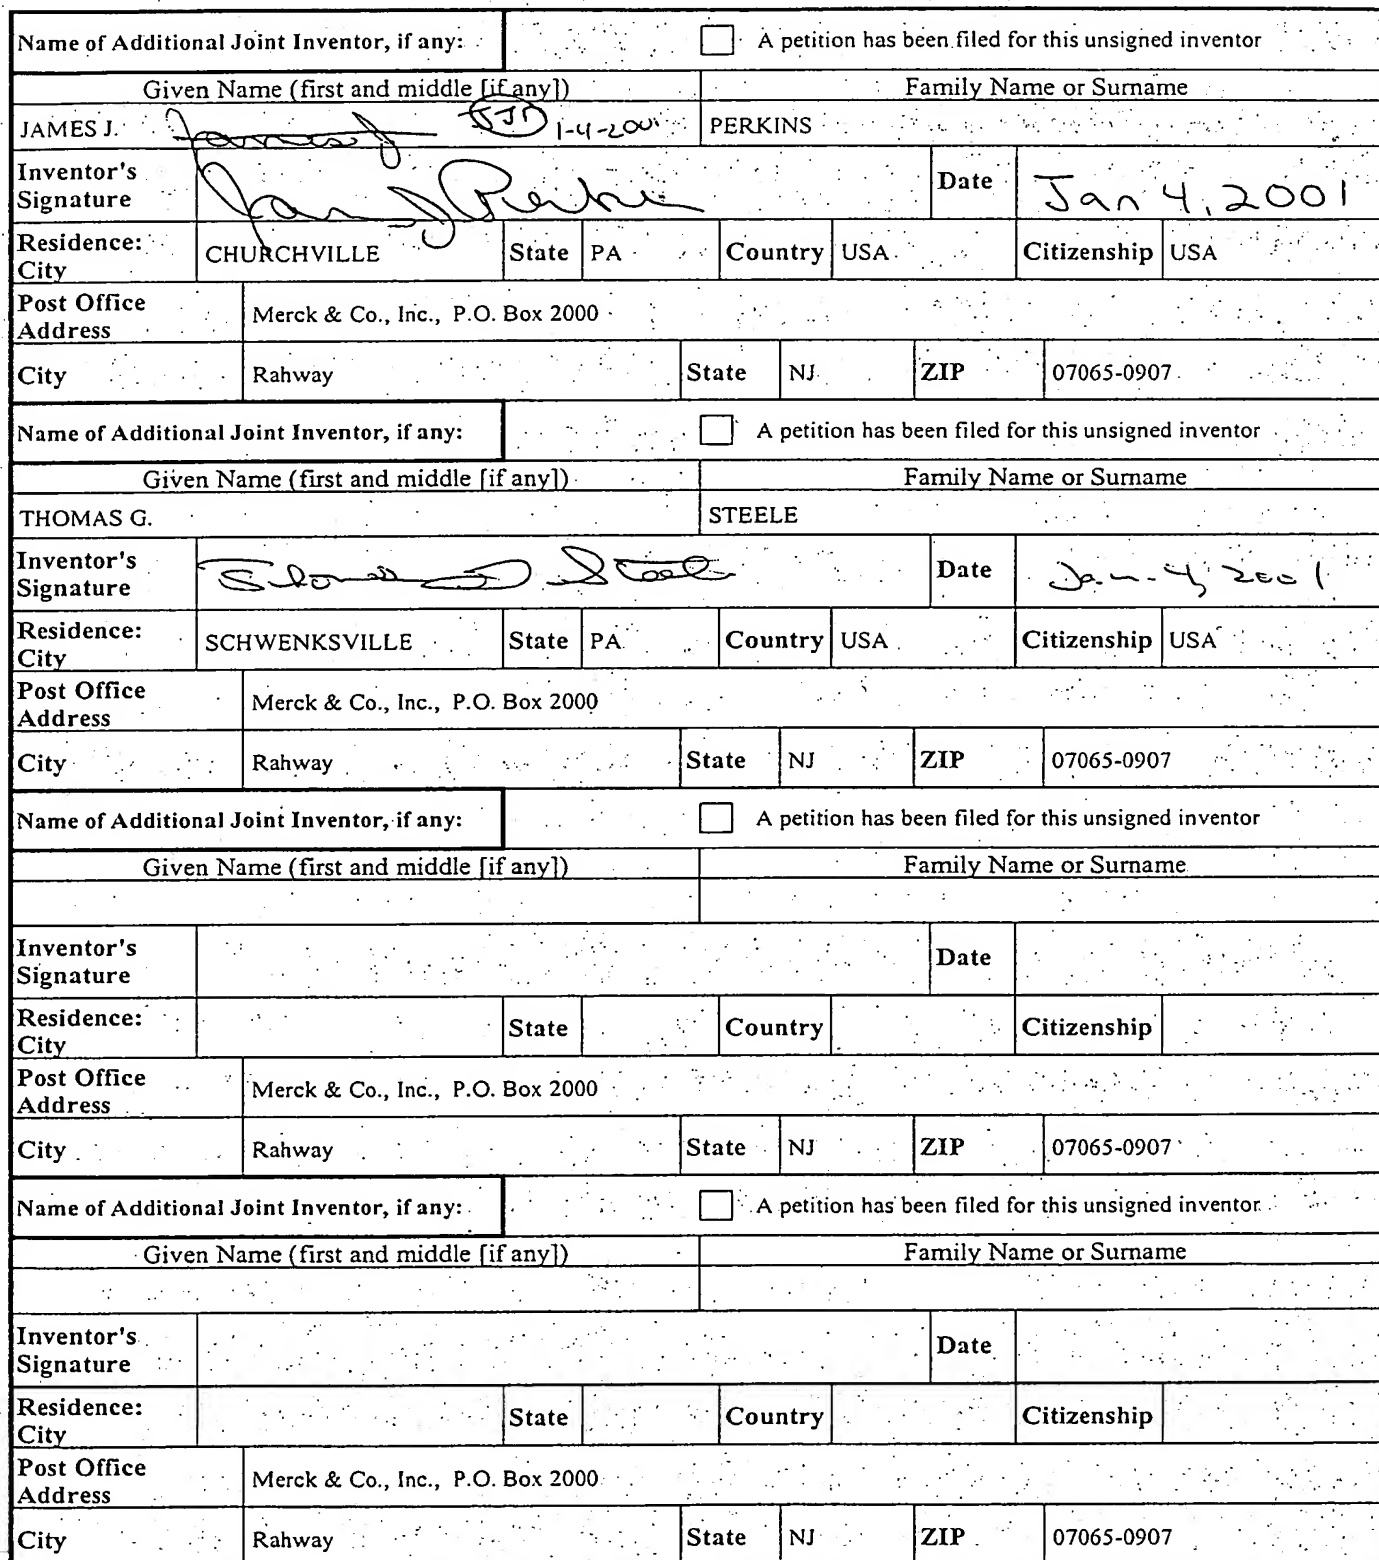 Name of Additional Joint Inventor, if any: A petition has been filed for this unsigned inventor
Given Name (first and middle [if any]) Family Name or Surname
JAMES J. James J 1-4-2001 PERKINS
Inventor's Signature James J Perkins Date Jan 4, 2001
Residence: City CHURCHVILLE State PA Country USA Citizenship USA
Post Office Address Merck & Co., Inc., P.O. Box 2000
City Rahway State NJ ZIP 07065-0907
Name of Additional Joint Inventor, if any: A petition has been filed for this unsigned inventor
Given Name (first and middle [if any]) Family Name or Surname
THOMAS G. STEELE
Inventor's Signature Thomas G Steele Date Jan. 4, 2001
Residence: City SCHWENKSVILLE State PA Country USA Citizenship USA
Post Office Address Merck & Co., Inc., P.O. Box 2000
City Rahway State NJ ZIP 07065-0907
Name of Additional Joint Inventor, if any: A petition has been filed for this unsigned inventor
Given Name (first and middle [if any]) Family Name or Surname
Inventor's Signature Date
Residence: City State Country Citizenship
Post Office Address Merck & Co., Inc., P.O. Box 2000
City Rahway State NJ ZIP 07065-0907
Name of Additional Joint Inventor, if any: A petition has been filed for this unsigned inventor
Given Name (first and middle [if any]) Family Name or Surname
Inventor's Signature Date
Residence: City State Country Citizenship
Post Office Address Merck & Co., Inc., P.O. Box 2000
City Rahway State NJ ZIP 07065-0907